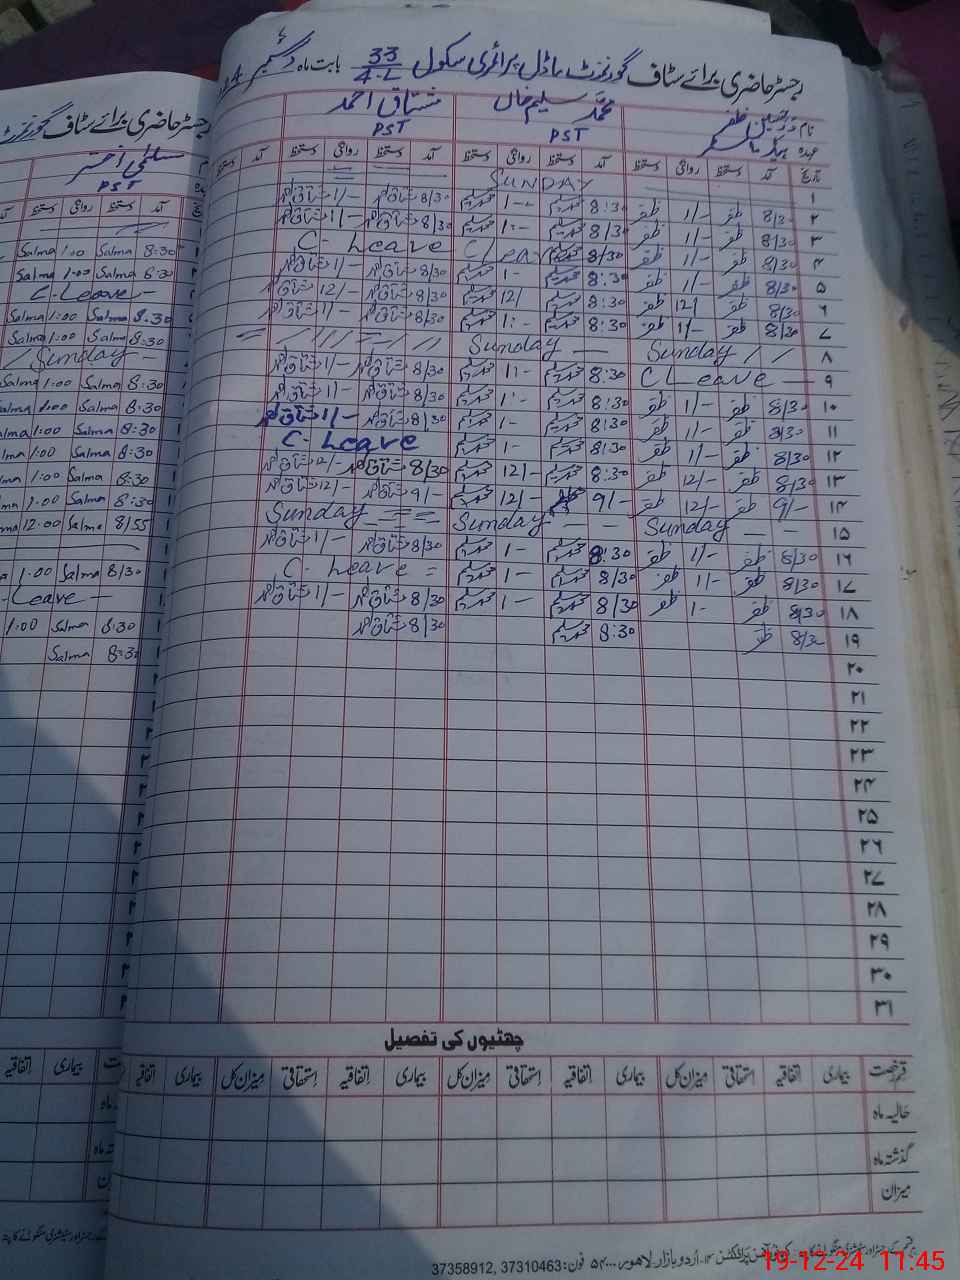 رجسٹر حاضری برائے سٹاف گورنمنٹ ماڈل پرائمری سکول 33/4-L بابت ماہ دسمبر
نام ظفر محمد سلیم خاں مشتاق احمد
عہدہ ہیڈ ماسٹر PST PST
تاریخ آمد دستخط روانگی دستخط آمد دستخط روانگی دستخط آمد دستخط روانگی دستخط آمد دستخط
۱ SUNDAY
۲ 8/30 ظفر 1/- ظفر 8:30 محمد سلیم 1-- محمد سلیم 8/30 مشتاق احمد 1/- مشتاق احمد
۳ 8/30 ظفر 1/- ظفر 8/30 محمد سلیم 1:- محمد سلیم 8/30 مشتاق احمد 1/- مشتاق احمد
۴ 8/30 ظفر 1/- ظفر 8/30 C Leave C- Leave
۵ 8/30 ظفر 1/- ظفر 8:30 محمد سلیم 1- محمد سلیم 8/30 مشتاق احمد 1/- مشتاق احمد
۶ 8/30 ظفر 12/ ظفر 8:30 محمد سلیم 12/ محمد سلیم 8/30 مشتاق احمد 12/- مشتاق احمد
۷ 8/30 ظفر 1/- ظفر 8:30 محمد سلیم 1:- محمد سلیم 8/30 مشتاق احمد 1/- مشتاق احمد
۸ Sunday Sunday
۹ C Leave 8:30 محمد سلیم 1:- محمد سلیم 8/30 مشتاق احمد 1/- مشتاق احمد
۱۰ 8/30 ظفر 1/- ظفر 8:30 محمد سلیم 1:- محمد سلیم 8/30 مشتاق احمد 1/- مشتاق احمد
۱۱ 8/30 ظفر 1/- ظفر 8:30 محمد سلیم 1- محمد سلیم 8/30 مشتاق احمد 1/- مشتاق احمد
۱۲ 8/30 ظفر 1/- ظفر 8:30 محمد سلیم 1- محمد سلیم C- Leave
۱۳ 8/30 ظفر 12/- ظفر 8:30 محمد سلیم 12/- محمد سلیم 8/30 مشتاق احمد 12/- مشتاق احمد
۱۴ 9/- ظفر 12/- ظفر 9/- 12/- محمد سلیم 9/- مشتاق احمد 12/- مشتاق احمد
۱۵ Sunday Sunday Sunday
۱۶ 8/30 ظفر 1/- ظفر 8:30 محمد سلیم 1- محمد سلیم 8/30 مشتاق احمد 1/- مشتاق احمد
۱۷ 8/30 ظفر 1/- ظفر 8/30 محمد سلیم 1- محمد سلیم C- Leave
۱۸ 8/30 ظفر 1- ظفر 8/30 محمد سلیم 1- محمد سلیم 8/30 مشتاق احمد 1/- مشتاق احمد
۱۹ 8/30 ظفر 8:30 محمد سلیم 8/30 مشتاق احمد
۲۰
۲۱
۲۲
۲۳
۲۴
۲۵
۲۶
۲۷
۲۸
۲۹
۳۰
۳۱
چھٹیوں کی تفصیل
قسم رخصت بیماری اتفاقیہ استحقاقی میزان کل بیماری اتفاقیہ استحقاقی میزان کل بیماری اتفاقیہ استحقاقی میزان کل بیماری اتفاقیہ
حالیہ ماہ
گذشتہ ماہ
میزان
اردو بازار لاہور فون: 37310463, 37358912
رجسٹر حاضری برائے سٹاف گورنمنٹ
سلمی اختر
PST
آمد دستخط روانگی دستخط
8:30 Salma 1:00 Salma
8:30 Salma 1:00 Salma
C-Leave-
8:30 Salma 1:00 Salma
8:30 Salma 1:00 Salma
Sunday
8:30 Salma 1:00 Salma
8:30 Salma 1:00
8:30 Salma 1:00
8:30 Salma 1:00
8:30 Salma 1:00
8:30 Salma 1:00
8/55 Salma 12:00
8/30 Salma 1:00
Leave-
8:30 Salma 1:00
8:30 Salma
بیماری اتفاقیہ
19-12-24 11:45